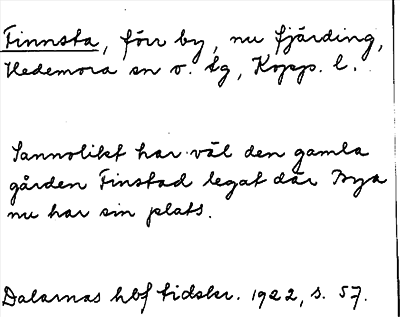 Finnsta, förr by, nu fjärding,
Hedemora sn o. tg, Kopp. l.
Sannolikt har väl den gamla
gården Finstad legat där Bya
nu har sin plats.
Dalarnas hbf tidskr. 1922, s. 57.